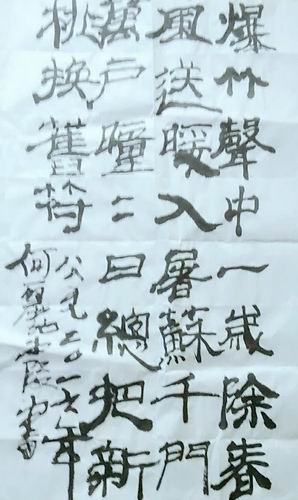 爆竹聲中一歲除春
風送暖入屠蘇千門
萬戶曈二日總把新
桃換舊符
公元二〇一六年
何麗